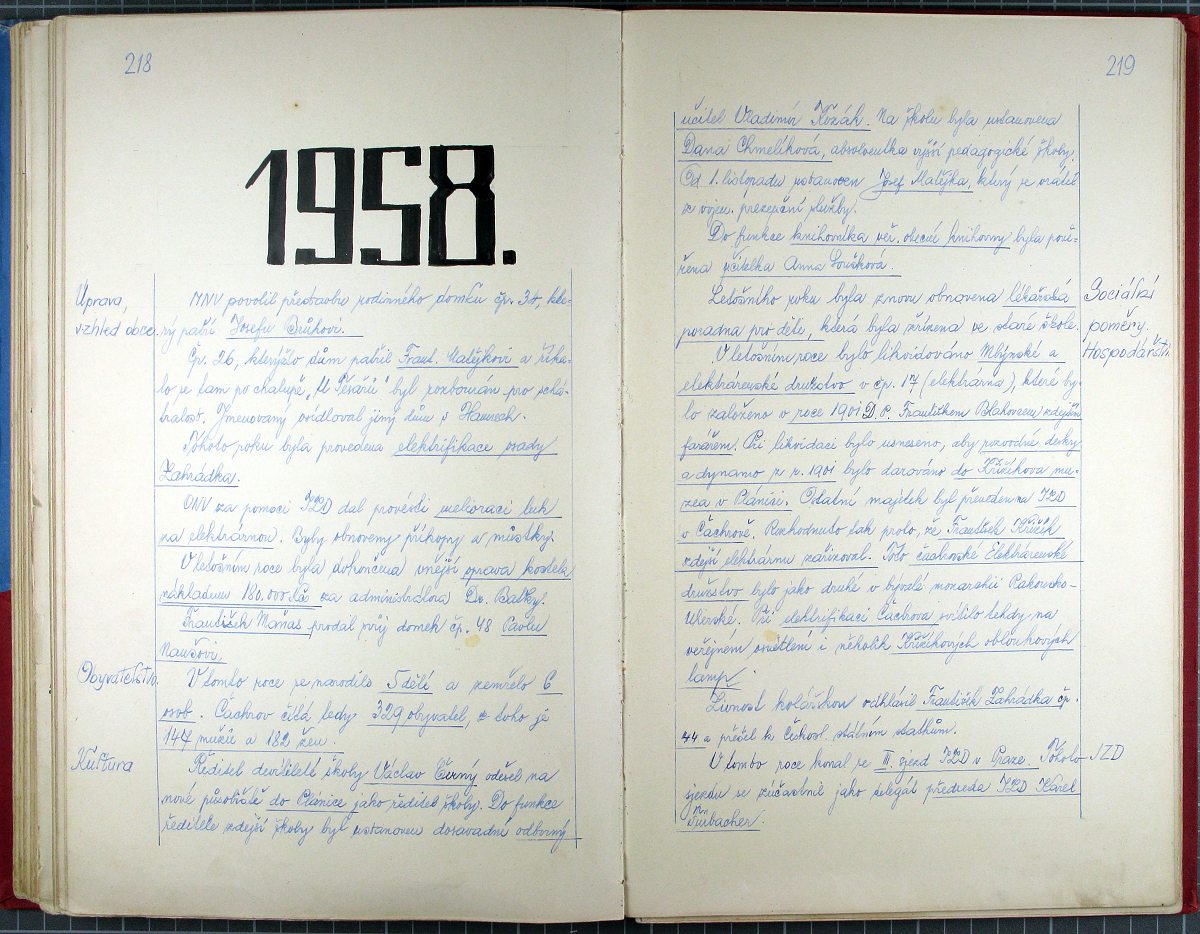 218
1958.
Úprava,
vzhled obce.
MNV povolil přestavbu rodinného domku čp. 34, kte-
rý patří Josefu Brůhovi.
Čp. 26, kterýžto dům patřil Frant. Matějkovi a říka-
lo se tam po chalupě, "U Pěšáků" byl rozbourán pro schá-
tralost. Jmenovaný ovidloval jiný dům v
Tohoto roku byla provedena elektrifikace osady
Zahrádka.
ONV za pomoci JZD dal provésti melioraci luk
na elektrárnou. Byly obnoveny příkopy a můstky.
V letošním roce byla dokončena vnější oprava kostela
nákladem 180.000 Kčs za administrátora Dr. Baťky.
František Maňas prodal svůj domek čp. 48 Pavlu
Naušovi.
Obyvatelstvo.
V tomto roce se narodilo 5 dětí a zemřelo 6
osob. Čachrov čítá tedy 329 obyvatel, z toho je
147 mužů a 182 žen.
Kultura
Ředitel devítileté školy Václav Černý odešel na
nové působiště do Plánice jako ředitel školy. Do funkce
ředitele zdejší školy byl ustanoven dosavadní odborný
219
učitel Vladimír Kozák. Na školu byla ustanovena
Dana Chmelíková, absolventka vyšší pedagogické školy.
Od 1. listopadu ustanoven Josef Matějka, který se vrátil
z vojen. presenční služby.
Do funkce knihovníka veř. obecní knihovny byla pově-
řena učitelka Anna Soušková.
Sociální
poměry.
Letošního roku byla znovu obnovena lékařská
poradna pro děti, která byla zřízena ve staré škole.
Hospodářství.
V letošním roce bylo likvidováno Mlýnské a
elektrárenské družstvo v čp. 17 (elektrárna), které by-
lo založeno v roce 1901 D. P. Františkem Blahovcem zdejším
farářem. Při likvidaci bylo usneseno, aby rozvodné desky
a dynamo z r. 1901 bylo darováno do Křižíkova mu-
zea v Plánici. Ostatní majetek byl převeden na JZD
v Čachrově. Rozhodnuto tak proto, že František Křižík
zdejší elektrárnu zařizoval. Toto čachrovské Elektrárenské
družstvo bylo jako druhé v bývalé monarchii Rakousko-
Uherské. Při elektrifikaci Čachrova svítilo tehdy na
veřejném osvětlení i několik Křižíkových obloukových
lamp.
Živnost kolářskou odhlásil František Zahrádka čp.
44 a přešel k Českosl. státním statkům.
JZD
V tomto roce konal se III. sjezd JZD v Praze. Tohoto
sjezdu se zúčastnil jako delegát předseda JZD Karel
Turbacher.